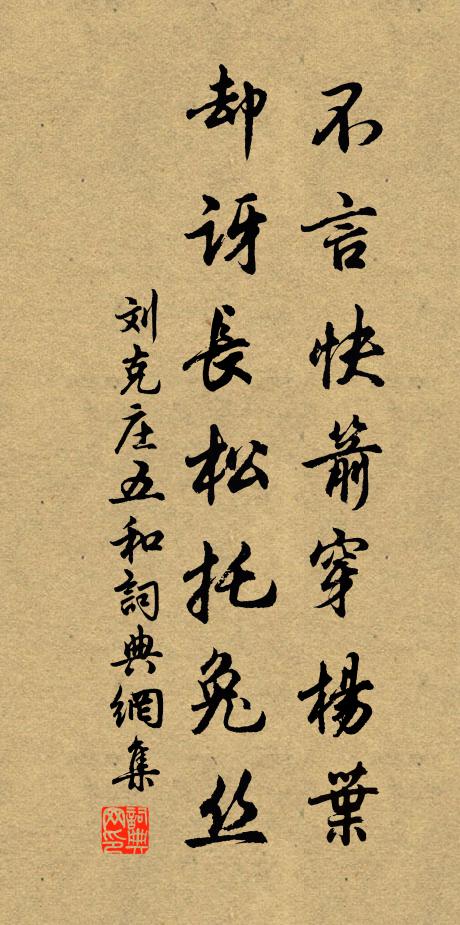 不言快箭穿楊葉
却讶長松托兔丝
刘克庄五和詞典網集
詞典网印